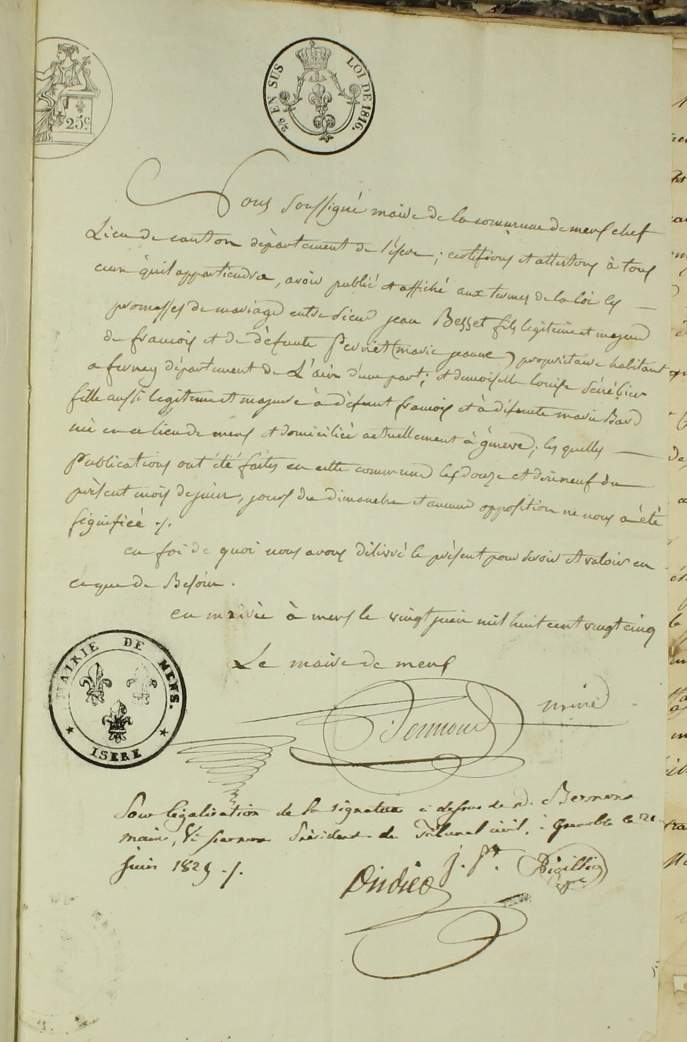 25c
25 EN SUS LOI DE 1816.
Nous soussigné maire de la commune de mens chef
Lieu de canton département de l'isère ; certifions et attestons à tous
ceux qu'il appartiendra, avoir publié et affiché aux termes de la loi les
promesses de mariage entre Sieur jean Besset fils legitime et majeur
de francois et de défunte perriet (marie jeanne) propriétaire habitant
a ferney département de L'ain d'une part ; et demoiselle Louise
fille aussi legitime et majeure à défunt francois et à défunte marie Bard
née en ce lieu de mens et domiciliée actuellement à géneve ; les quelles
publications ont été faites en cette commune les douze et dixneuf du
présent mois de juin, jours de dimanche et aucune opposition ne nous a été
signifiée ./.
en foi de quoi nous avons délivré le présent pour servir et valoir en
cas que de Besoin.
en mairie à mens le vingt juin mil huit cent vingt cinq
Le maire de mens
MAIRIE DE MENS.
ISERE
Pour légalisation de la signature ci dessus de M.
maire, par Président du Tribunal civil, à Grenoble le 21
juin 1825 ./.